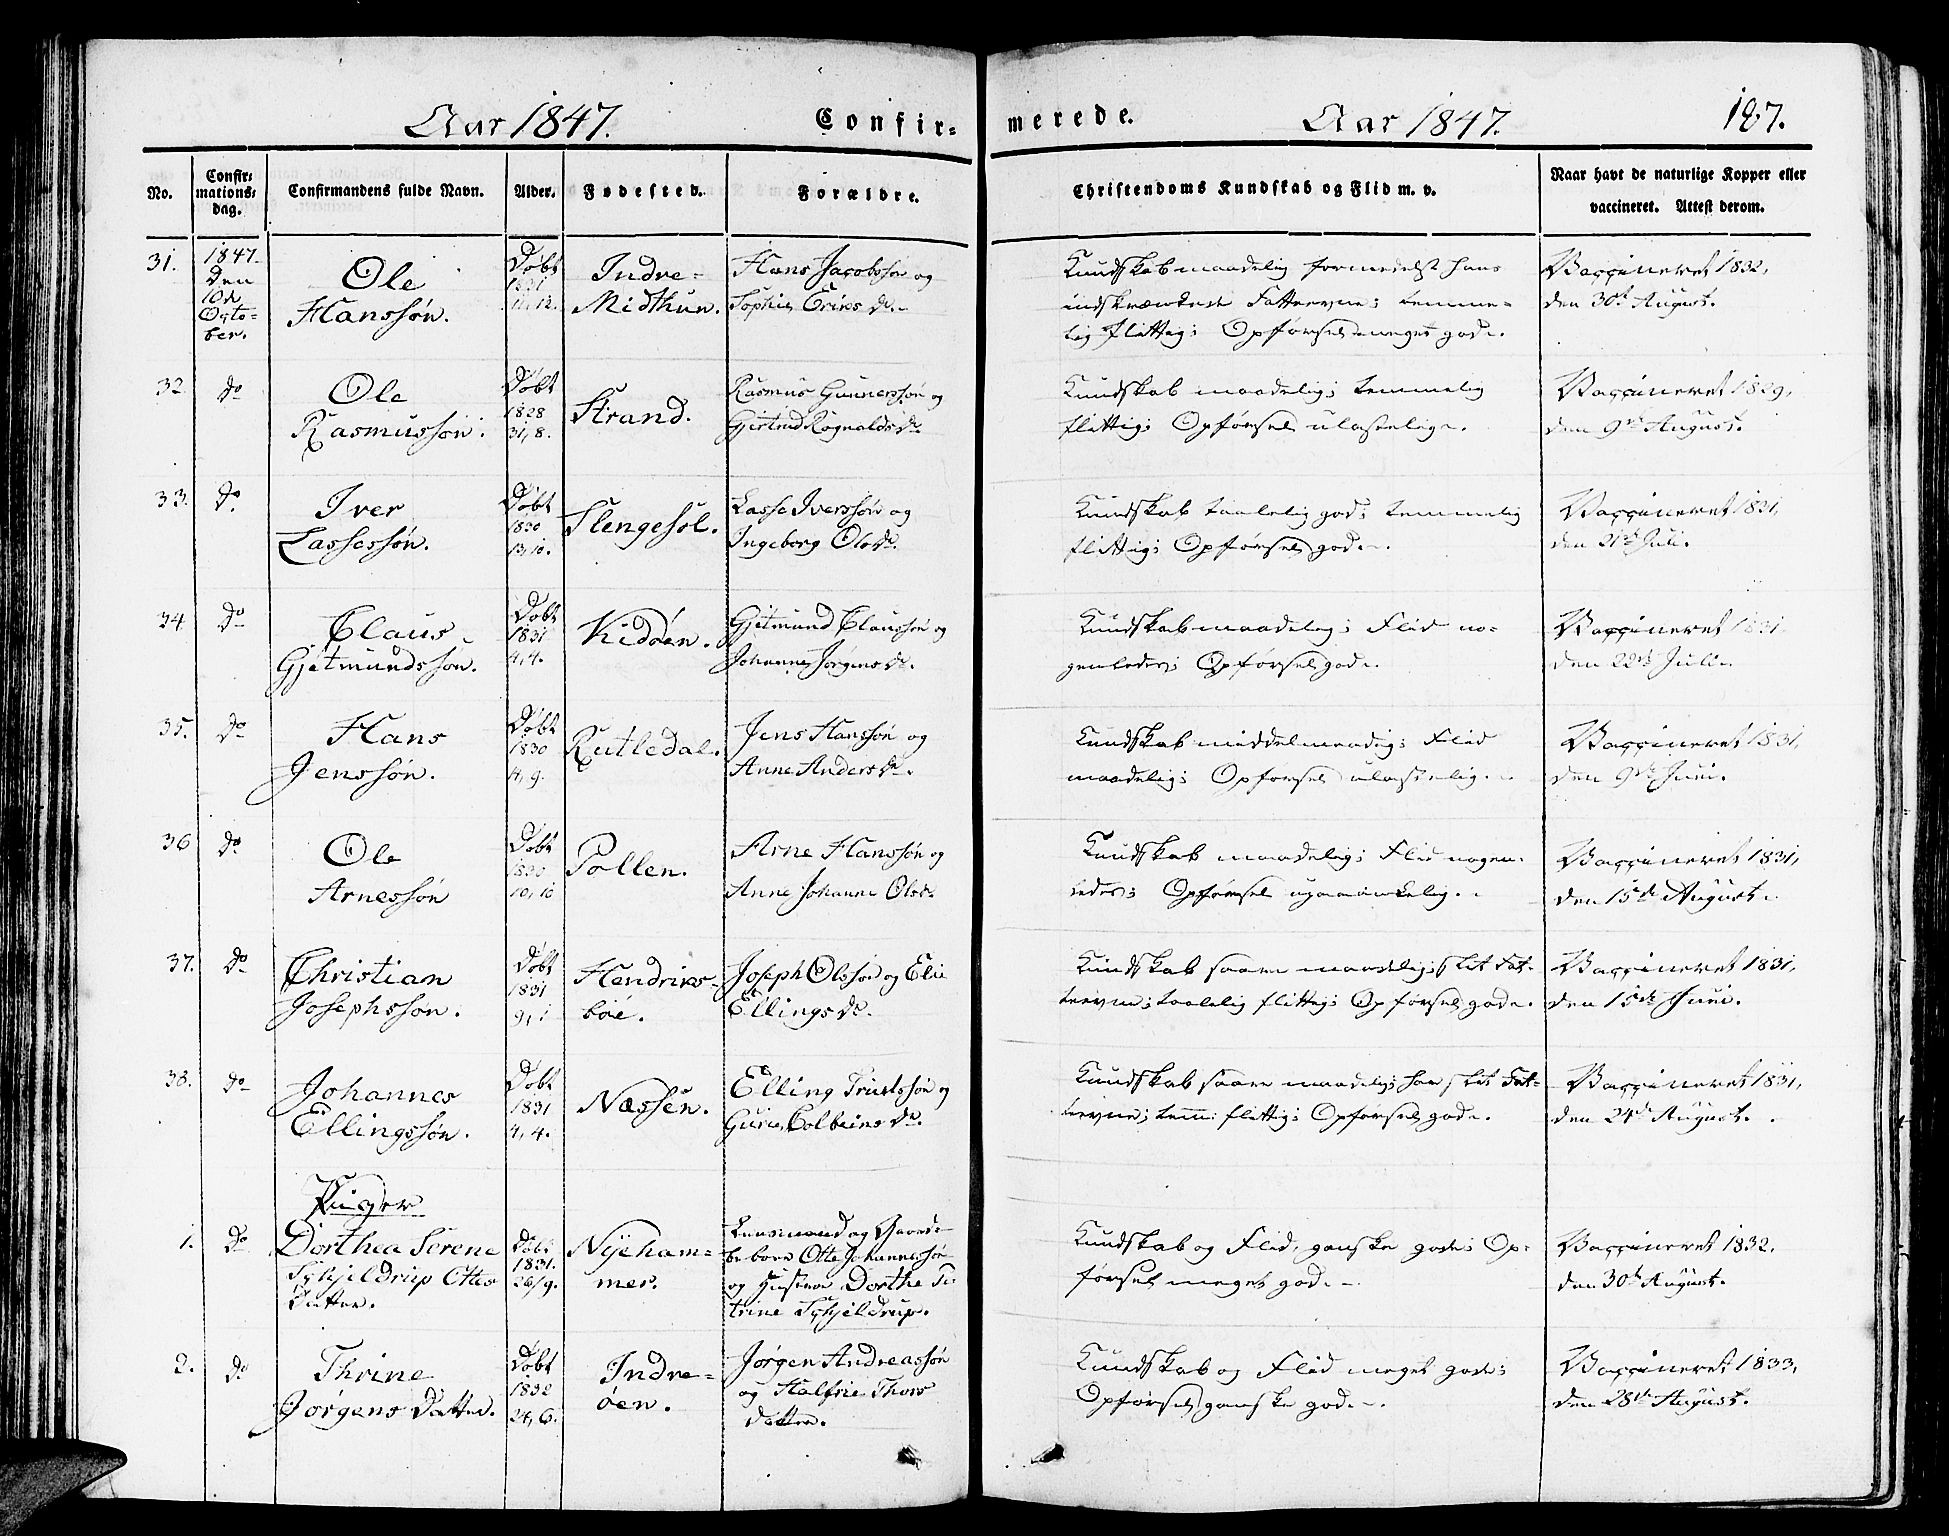 Aar 1847. Confir= merede. Aar 1847. 187.
No. Confir= mations= dag. Confirmandens fulde Navn. Alder. Fødested. Forældre. Christendoms Kundskab og Flid m. v. Naar havt de naturlige Kopper eller vaccineret. Attest derom.
31. 1847. Den 10de Octo= ber. Ole Hanssøn. Døbt 1831 11, 12. Indre= Midthun. Hans Jacobssøn og Sophie Eriks D. Kundskab maadelig formedelst hans indskrænkede Fatteevne; temme= lig flittig; Opførsel meget god. Vaccineret 1832, den 30te August.
32. Do Ole Rasmussøn. Døbt 1828 31, 8. Strand. Rasmus Gunnerssøn og Gjertrud Rognalds Dr. Kundskab maadelig; temmelig flittig; Opførsel ulastelig. Vaccineret 1829, den 9de August.
33. Do Iver Lassessøn. Døbt 1830 13, 10. Slengesol. Lasse Iverssøn og Ingeborg Ols Dr. Kundskab taalelig god; temmelig flittig; Opførsel god. Vaccineret 1831, den 21de Juli.
34 Do Claus Gjetmundssøn. Døbt 1831 4, 4. Kidøen. Gjetmund Claussøn og Johanne Jørgens Dr. Kundskab maadelig; Flid no= genledes; Opførsel god. Vaccineret 1831 den 22de Juli.
35. Do Hans Jenssøn. Døbt 1830 4, 9. Rutledal. Jens Hanssøn og Anne Anders Dr. Kundskab middelmaadig; Flid maadelig; Opførsel ulastelig. Vaccineret 1831, den 9de Juni.
36 Do Ole Arnessøn Døbt 1830 10, 10 Pollen. Arne Hanssøn og Anne Johanne Ols Dr Kundskab maadelig; Flid nogen= ledes; Opførsel upaaankelig. Vaccineret 1831, den 15de August.
37. Do Christian Josephssøn. Døbt 1831 9, 1 Hendriks= bøe. Joseph Olssøn og Elie Ellings Dr. Kundskab saare maadelig; slet Fat= teevne; taalelig flittig; Opførsel god. Vaccineret 1831, den 15de Juni.
38. Do Johannes Ellingssøn. Døbt 1831 4, 4. Næssen. Elling og Guri Colbeins Dr. Kundskab saare maadelig; har slet Fat= teevne; tem: flittig; Opførsel god. Vaccineret 1831, den 24de August.
Piger
1. Do Dorthea Serene Schjeldrup Ottes Datter. Døbt 1831. 26/9. Nyeham= mer. Lensmand og Gaard= beboer Otte Johannessøn og Hustrue Dorthe Ca= trine Schjeldrup. Kundskab og Flid, ganske god; Op= førsel meget god. Vaccineret 1832, den 30te August.
2. Do Thrine Jørgens Datter. Døbt 1832 24, 6. Indre= øen. Jørgen Andreassøn og Halfrie Thors Datter. Kundskab og Flid meget god; Opførsel ganske god. Vaccineret 1833, den 28de August.